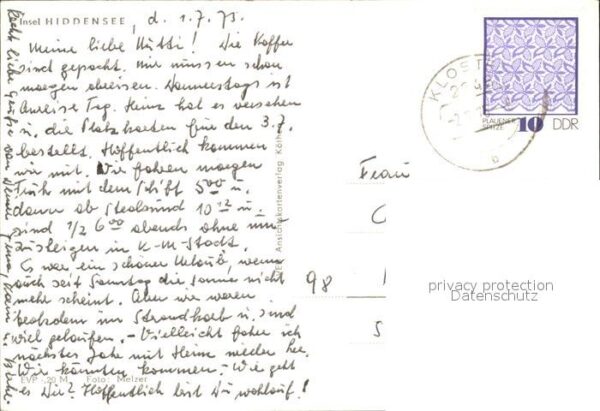 Insel HIDDENSEE, d. 1.7.75.
Meine liebe Mutti! Die Koffer
sind gepackt. Wir müssen schon
morgen abreisen. Donnerstags ist
Anreise Tag. Heinz hat es versehen
u. die Platzkarten für den 3.7.
bestellt. Hoffentlich kommen
wir mit. Wir fahren morgen
Früh mit dem Schiff 5 00 u.
dann ab Stralsund 10 12 u.
sind 1/2 6 00 abends ohne um
zusteigen in K-M-Stadt.
Es war ein schöner Urlaub, wenn
auch seit Sonntag die Sonne nicht
mehr scheint. Aber wir waren
trotzdem im Strandkorb u. sind
viel gelaufen. - Vielleicht fahre ich
nächstes Jahr mit Heinz wieder her.
Wir könnten kommen. - Wie geht
es Dir? Hoffentlich bist Du wohlauf!
Recht liebe Grüße von Deiner
EVP -,20 M Foto: Melzer
Ansichtskartenverlag Köthen
KLOSTER
PLAUENER
SPITZE
10 DDR
b
Frau
C
98
S
privacy protection
Datenschutz